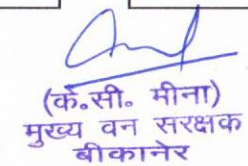 (के.सी. मीना)
मुख्य वन सरक्षक
बीकानेर